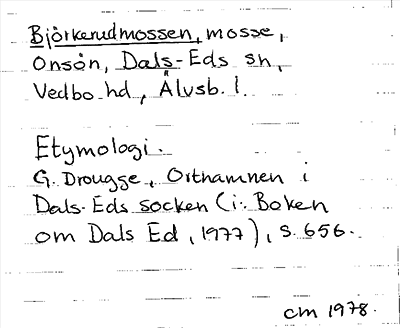 Björkerudmossen, mosse,
Onsön, Dals-Eds sn,
Vedbo hd, Älvsb. l.
Etymologi.
G. Drougge, Ortnamnen i
Dals-Eds socken (i: Boken
om Dals Ed, 1977), s. 656.
cm 1978.